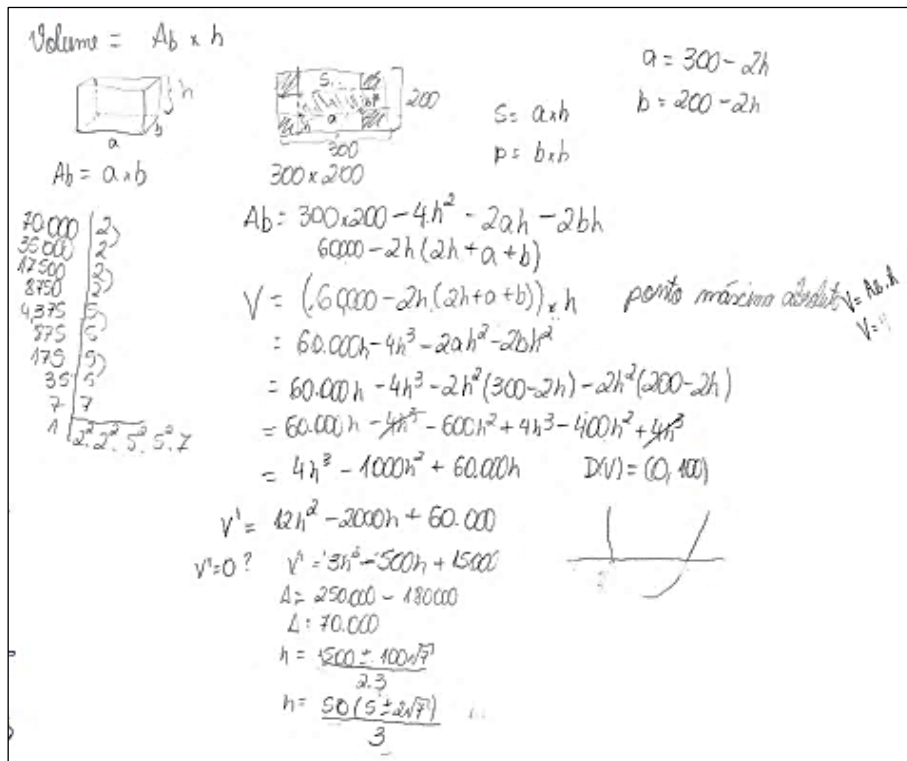 Volume = Ab × h
a = 300 - 2h
b = 200 - 2h
h
b
a
S
a
200
300
300 × 200
S = a×h
p = b×h
Ab = a×b
70.000 | 2
35000 | 2
17500 | 2
8750 | 2
4,375 | 5
875 | 5
175 | 5
35 | 5
7 | 7
1 | 2².2².5².5².7
Ab = 300×200 - 4h² - 2ah - 2bh
60000 - 2h(2h+a+b)
V = (60000 - 2h(2h+a+b)) × h
ponto máximo absoluto
V = Ab.h
V =
= 60.000h - 4h³ - 2ah² - 2bh²
= 60.000h - 4h³ - 2h²(300-2h) - 2h²(200-2h)
= 60.000h - 4h³ - 600h² + 4h³ - 400h² + 4h³
= 4h³ - 1000h² + 60.000h
D(V) = (0, 100)
V' = 12h² - 2000h + 60.000
V'=0? V' = 3h² - 500h + 15000
Δ = 250.000 - 180000
Δ = 70.000
h = 500 ± 100√7
2.3
h = 50(5 ± 2√7)
3